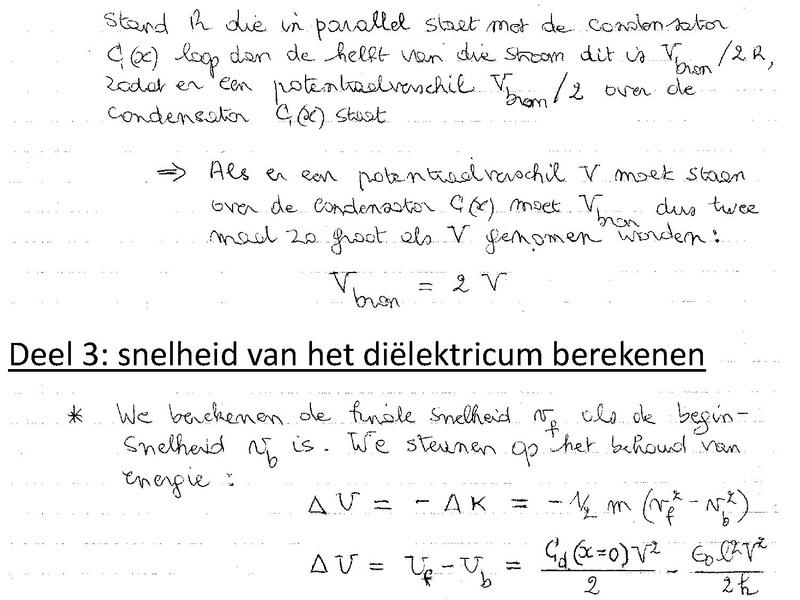 stand R die in parallel staat met de condensator
C₁(x) loop dan de helft van die stroom dit is V_bron/2R,
zodat er een potentiaalverschil V_bron/2 over de
condensator C₁(x) staat
⇒ Als er een potentiaalverschil V moet staan
over de condensator C₁(x) moet V_bron dus twee
maal zo groot als V genomen worden:
V_bron = 2 V
Deel 3: snelheid van het diëlektricum berekenen
* We berekenen de finale snelheid v_f als de begin-
snelheid v_b is. We steunen op het behoud van
energie:
ΔU = -ΔK = -1/2 m (v_f² - v_b²)
ΔU = U_f - U_b = C_d(x=0)V²/2 - ε₀l²V²/2h